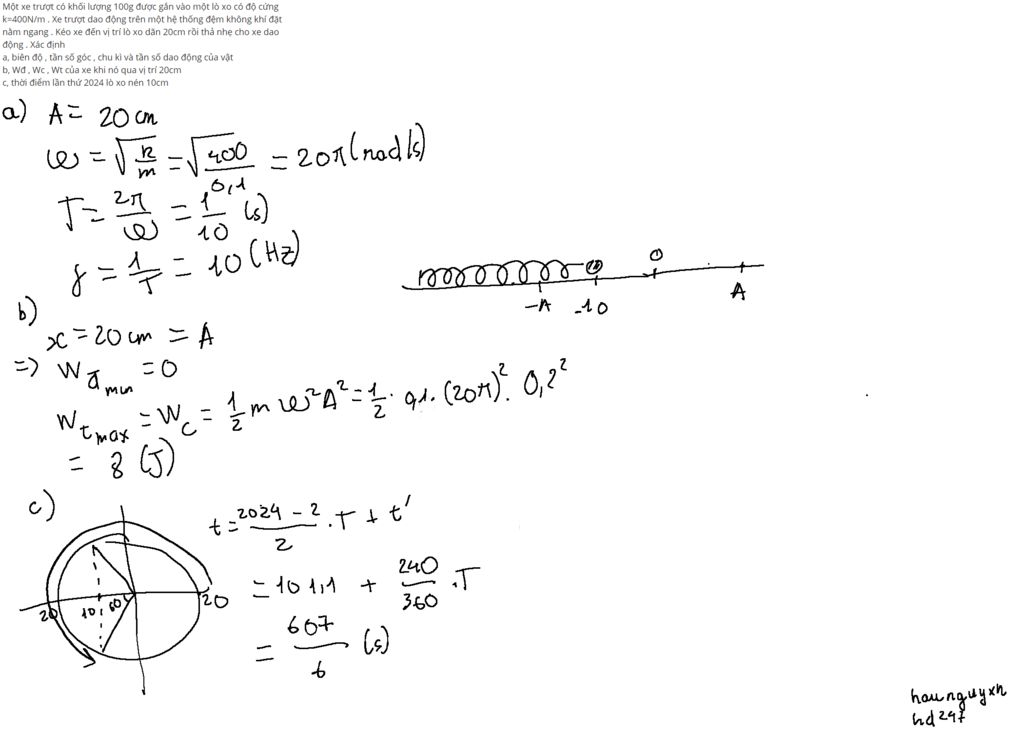 Một xe trượt có khối lượng 100g được gắn vào một lò xo có độ cứng
k=400N/m . Xe trượt dao động trên một hệ thống đệm không khí đặt
nằm ngang . Kéo xe đến vị trí lò xo dãn 20cm rồi thả nhẹ cho xe dao
động . Xác định
a, biên độ , tần số góc , chu kì và tần số dao động của vật
b, Wđ , Wc , Wt của xe khi nó qua vị trí 20cm
c, thời điểm lần thứ 2024 lò xo nén 10cm
a) A = 20 cm
ω = √(k/m) = √(400/0,1) = 20π (rad/s)
T = 2π/ω = 1/10 (s)
f = 1/T = 10 (Hz)
-A -10 O A
b)
x = 20 cm = A
=> Wđmin = 0
Wtmax = Wc = 1/2 m ω² A² = 1/2 . 0,1. (20π)². 0,2²
= 8 (J)
c)
20 10 60 20
t = (2024 - 2)/2 . T + t'
= 101,1 + 240/360 .T
= 607/6 (s)
haunguyxn
hd247